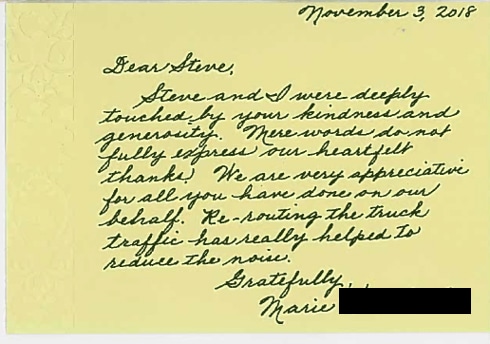 November 3, 2018
Dear Steve,
Steve and I were deeply
touched by your kindness and
generosity. Mere words do not
fully express our heartfelt
thanks! We are very appreciative
for all you have done on our
behalf. Re-routing the truck
traffic has really helped to
reduce the noise.
Gratefully,
Marie